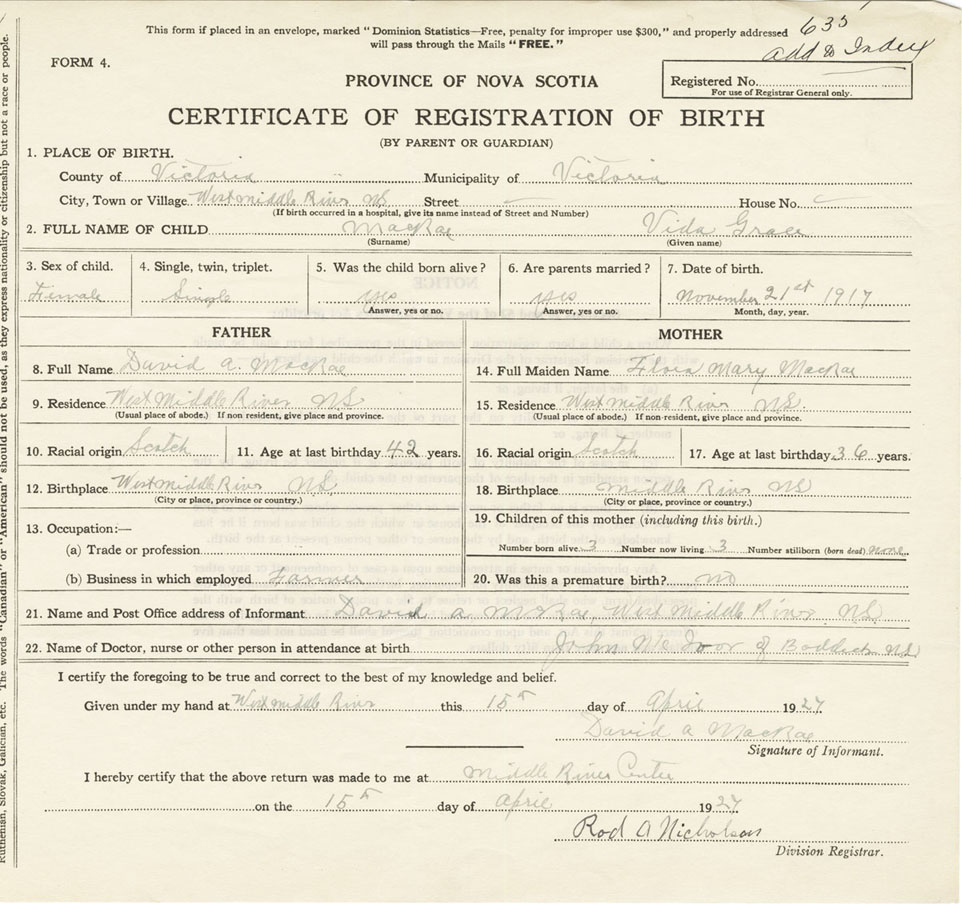 This form if placed in an envelope, marked "Dominion Statistics—Free, penalty for improper use $300," and properly addressed
will pass through the Mails "FREE."
635
add to Index
FORM 4.
PROVINCE OF NOVA SCOTIA
Registered No.
For use of Registrar General only.
CERTIFICATE OF REGISTRATION OF BIRTH
(BY PARENT OR GUARDIAN)
1. PLACE OF BIRTH.
County of Victoria Municipality of Victoria
City, Town or Village West middle River NS Street House No.
(If birth occurred in a hospital, give its name instead of Street and Number)
2. FULL NAME OF CHILD MacRae Vida Grace
(Surname) (Given name)
3. Sex of child. 4. Single, twin, triplet. 5. Was the child born alive? 6. Are parents married? 7. Date of birth.
Female Single yes yes November 21st 1917
Answer, yes or no. Answer, yes or no. Month, day, year.
FATHER
8. Full Name David A. MacRae
9. Residence West Middle River NS
(Usual place of abode.) If non resident, give place and province.
10. Racial origin Scotch 11. Age at last birthday 42 years.
12. Birthplace West Middle River NS
(City or place, province or country.)
13. Occupation:—
(a) Trade or profession
(b) Business in which employed Farmer
MOTHER
14. Full Maiden Name Flora Mary MacRae
15. Residence West Middle River NS
(Usual place of abode.) If non-resident, give place and province.
16. Racial origin Scotch 17. Age at last birthday 36 years.
18. Birthplace middle River NS
(City or place, province or country.)
19. Children of this mother (including this birth.)
Number born alive 3 Number now living 3 Number stillborn (born dead) none
20. Was this a premature birth? no
21. Name and Post Office address of Informant David A McRae, West Middle River NS
22. Name of Doctor, nurse or other person in attendance at birth John Mc Ivor of Baddeck NS
I certify the foregoing to be true and correct to the best of my knowledge and belief.
Given under my hand at West middle River this 15th day of April 1927
David A MacRae
Signature of Informant.
I hereby certify that the above return was made to me at Middle River Center
on the 15th day of April 1927
Rod A Nicholson
Division Registrar.
Ruthenian, Slovak, Galician, etc. The words "Canadian" or "American" should not be used, as they express nationality or citizenship but not a race or people.